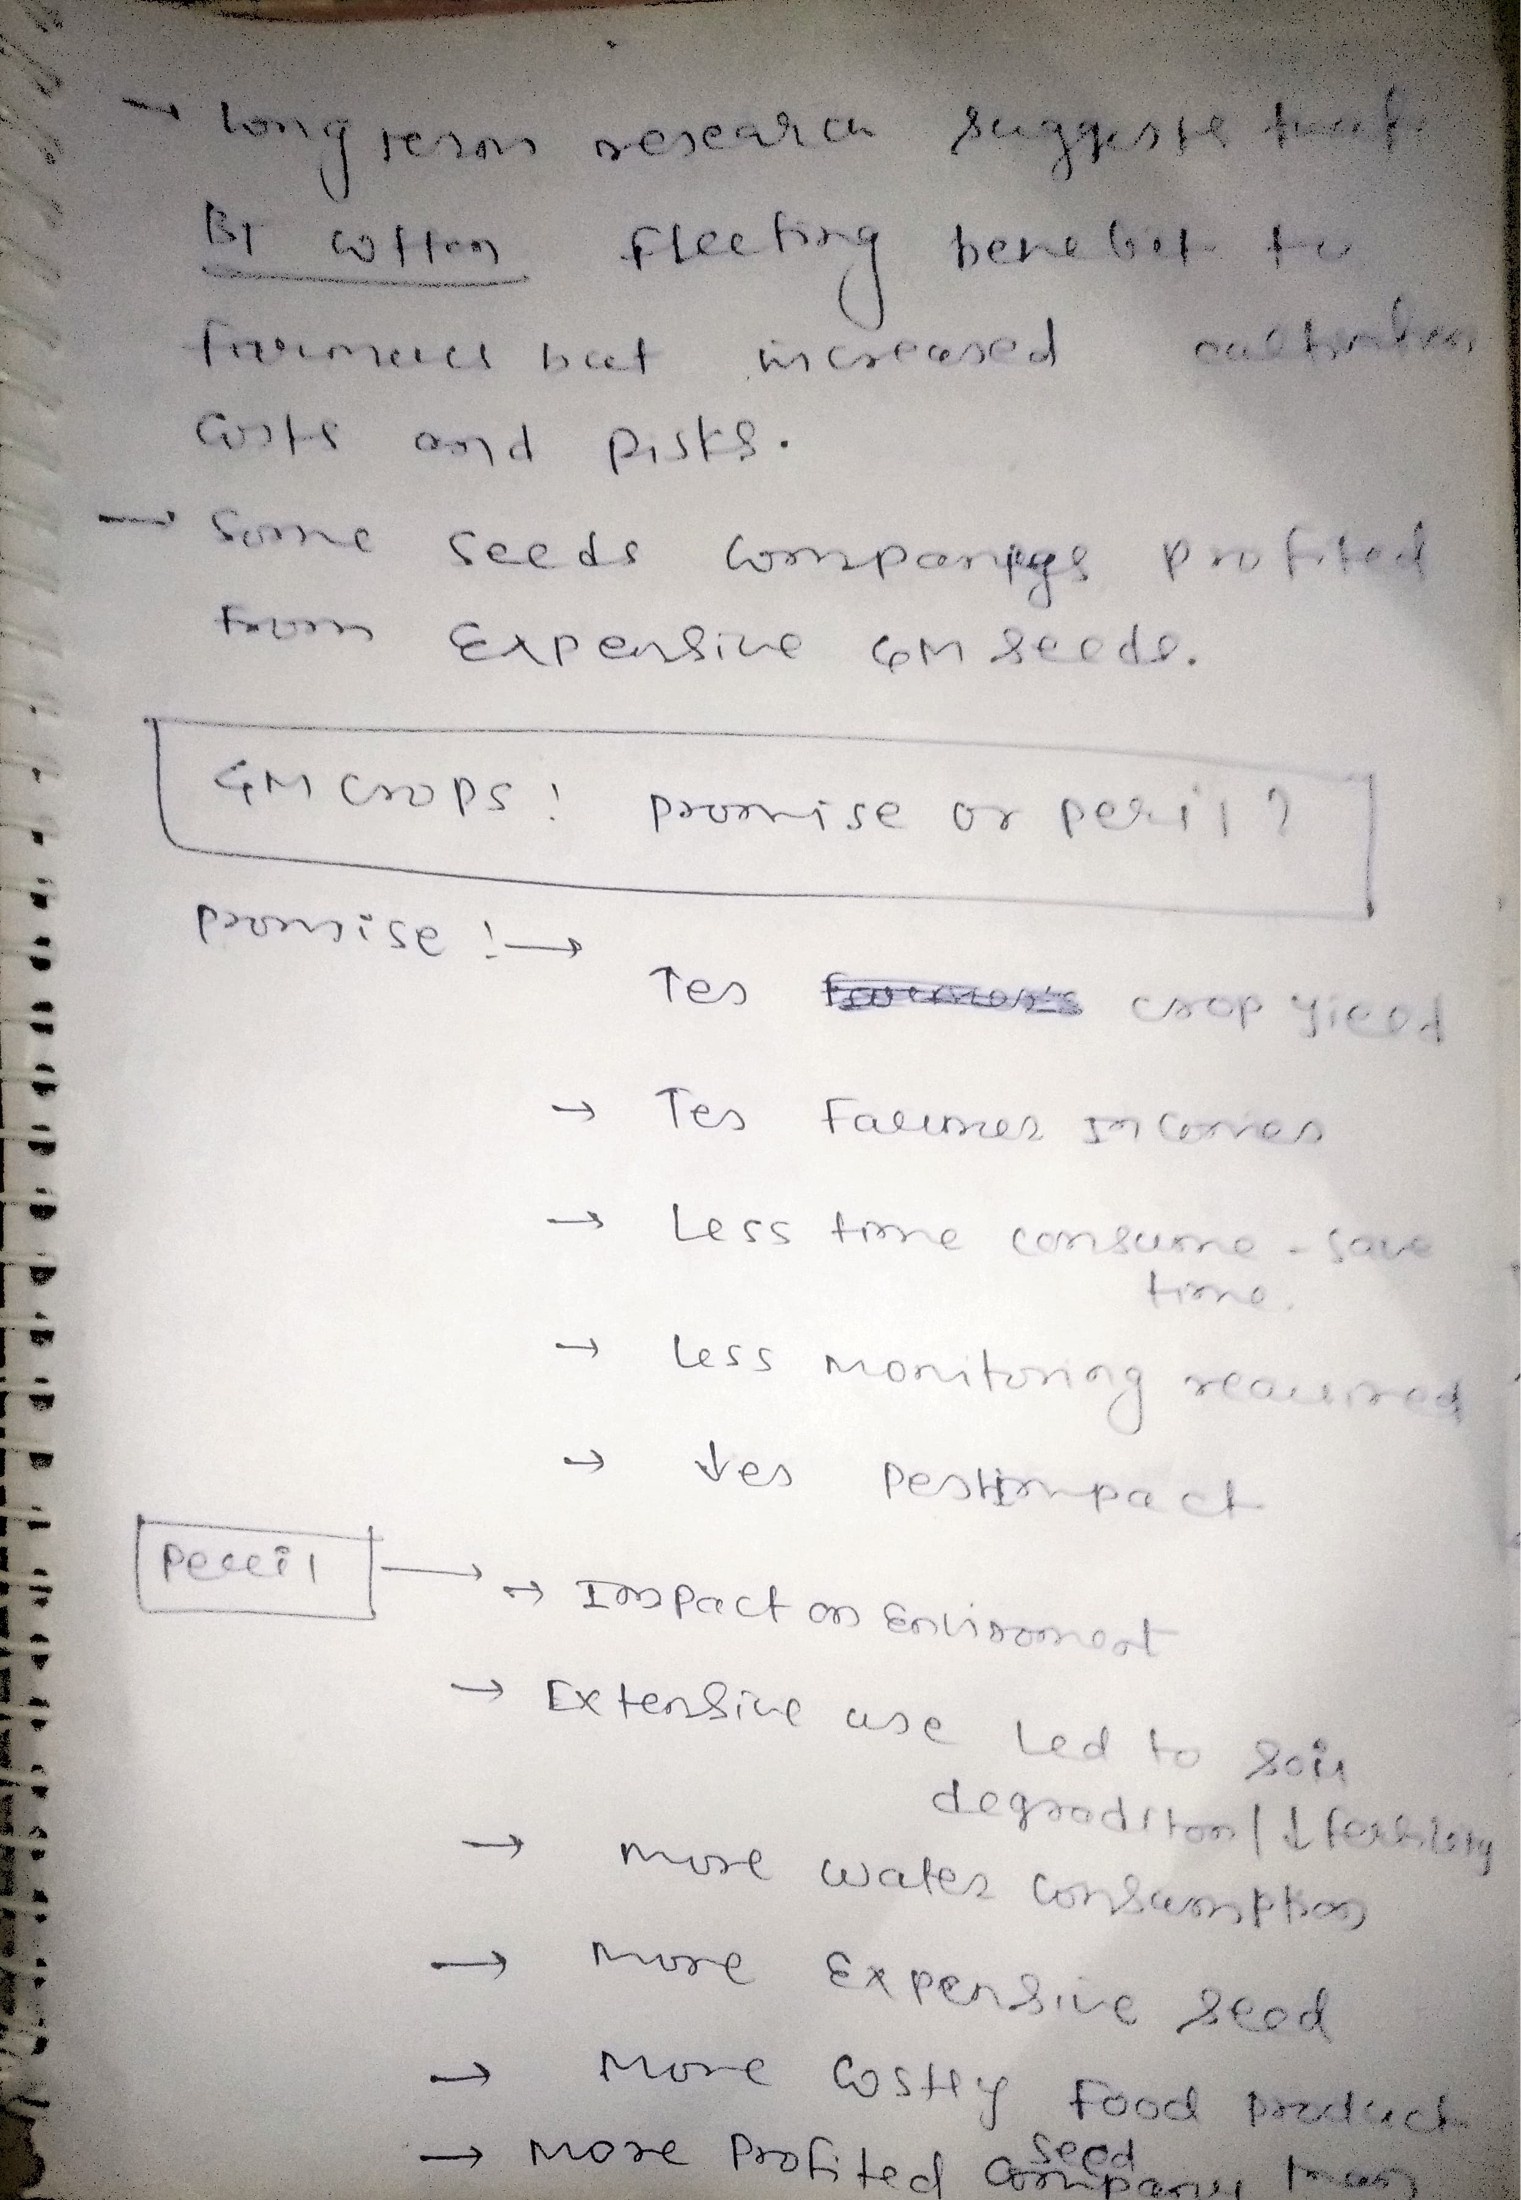 → Long term research suggests that
BT cotton fleeting benefit to
farmers but increased cultivation
costs and risks.
→ Some seeds companys profited
from Expensive GM seeds.
GM crops: promise or peril?
promise :→
↑es crop yield
→ ↑es Farmer Incomes
→ Less time consume - save
time.
→ Less Monitoring required
→ ↓es Pest impact
Peril → → Impact on Enviroment
→ Extensive use Led to Soil
degradition / ↓ fertility
→ more water consumption
→ more Expensive seed
→ More costly Food product
→ More Profited seed company than